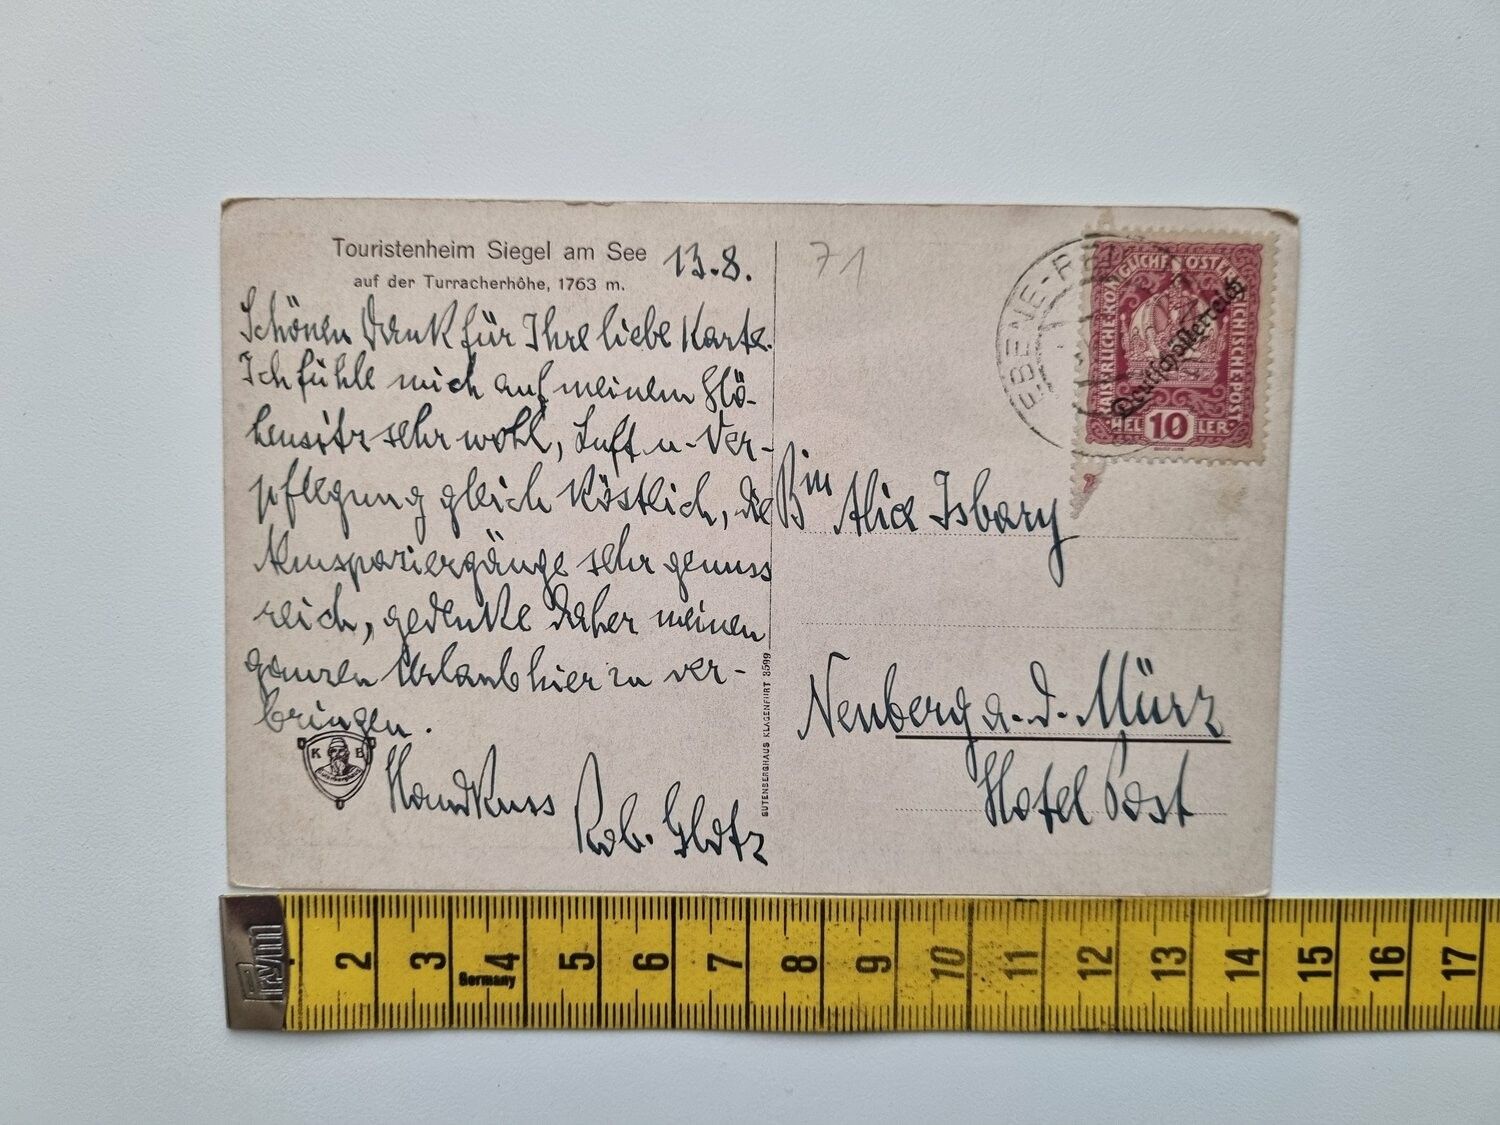 Touristenheim Siegel am See
auf der Turracherhöhe, 1763 m.
13.8.
Schönen Dank für Ihre liebe Karte.
Ich fühle mich auf meinem Hö-
hensitz sehr wohl, Luft u. Ver-
pflegung gleich köstlich, die
spaziergänge sehr genuss
reich, gedenke daher meinen
ganzen Urlaub hier zu ver-
bringen.
Handkuss
Rob. Glotz
K B
GUTENBERGHAUS KLAGENFURT 3599
71
EBENE-
KAISERLICHE KÖNIGLICHE ÖSTERREICHISCHE POST
Deutschösterreich
10
HELLER
Bin Alice Isbary
Neuberg a. d. Mürz
Hotel Post
2 3 4 5 6 7 8 9 10 11 12 13 14 15 16 17
Germany